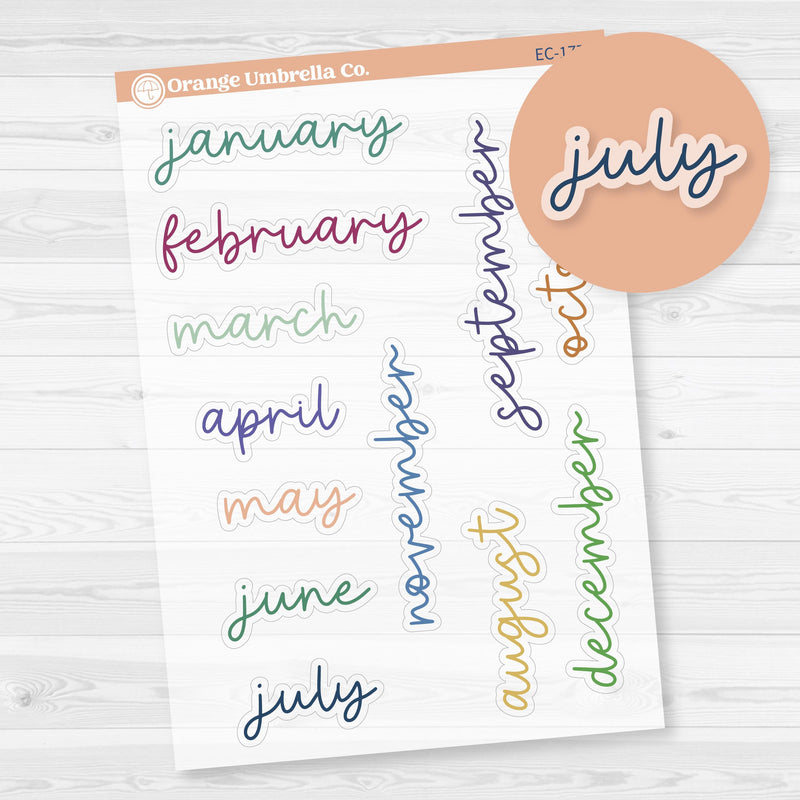 Orange Umbrella Co.
january
february
march
april
may
june
july
september
november
august
december
july